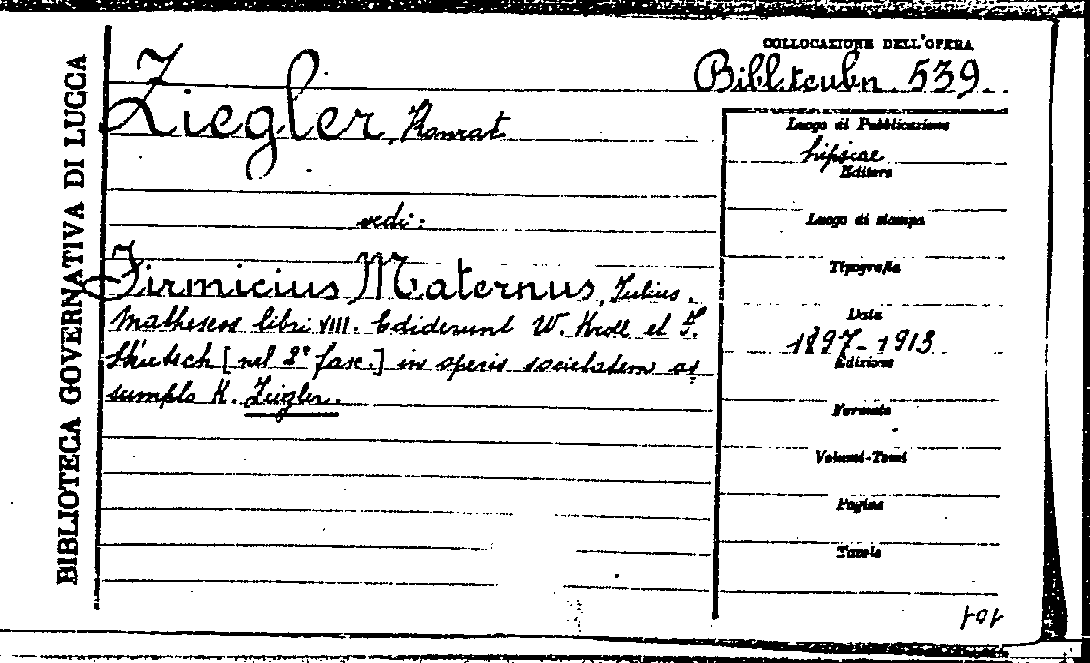 BIBLIOTECA GOVERNATIVA DI LUCCA
COLLOCAZIONE DELL'OPERA
Bibl. teubn. 539.
Ziegler, Konrat
vedi:
Firmicius Maternus, Julius.
Matheseos libri VIII. Ediderunt W. Kroll et F.
Skutsch [nel 2° fasc.] in operis societatem as
sumpto K. Ziegler.
Luogo di Pubblicazione
Lipsiae
Editore
Luogo di stampa
Tipografia
Data
1897-1913
Edizione
Formato
Volumi-Tomi
Pagine
Tavole